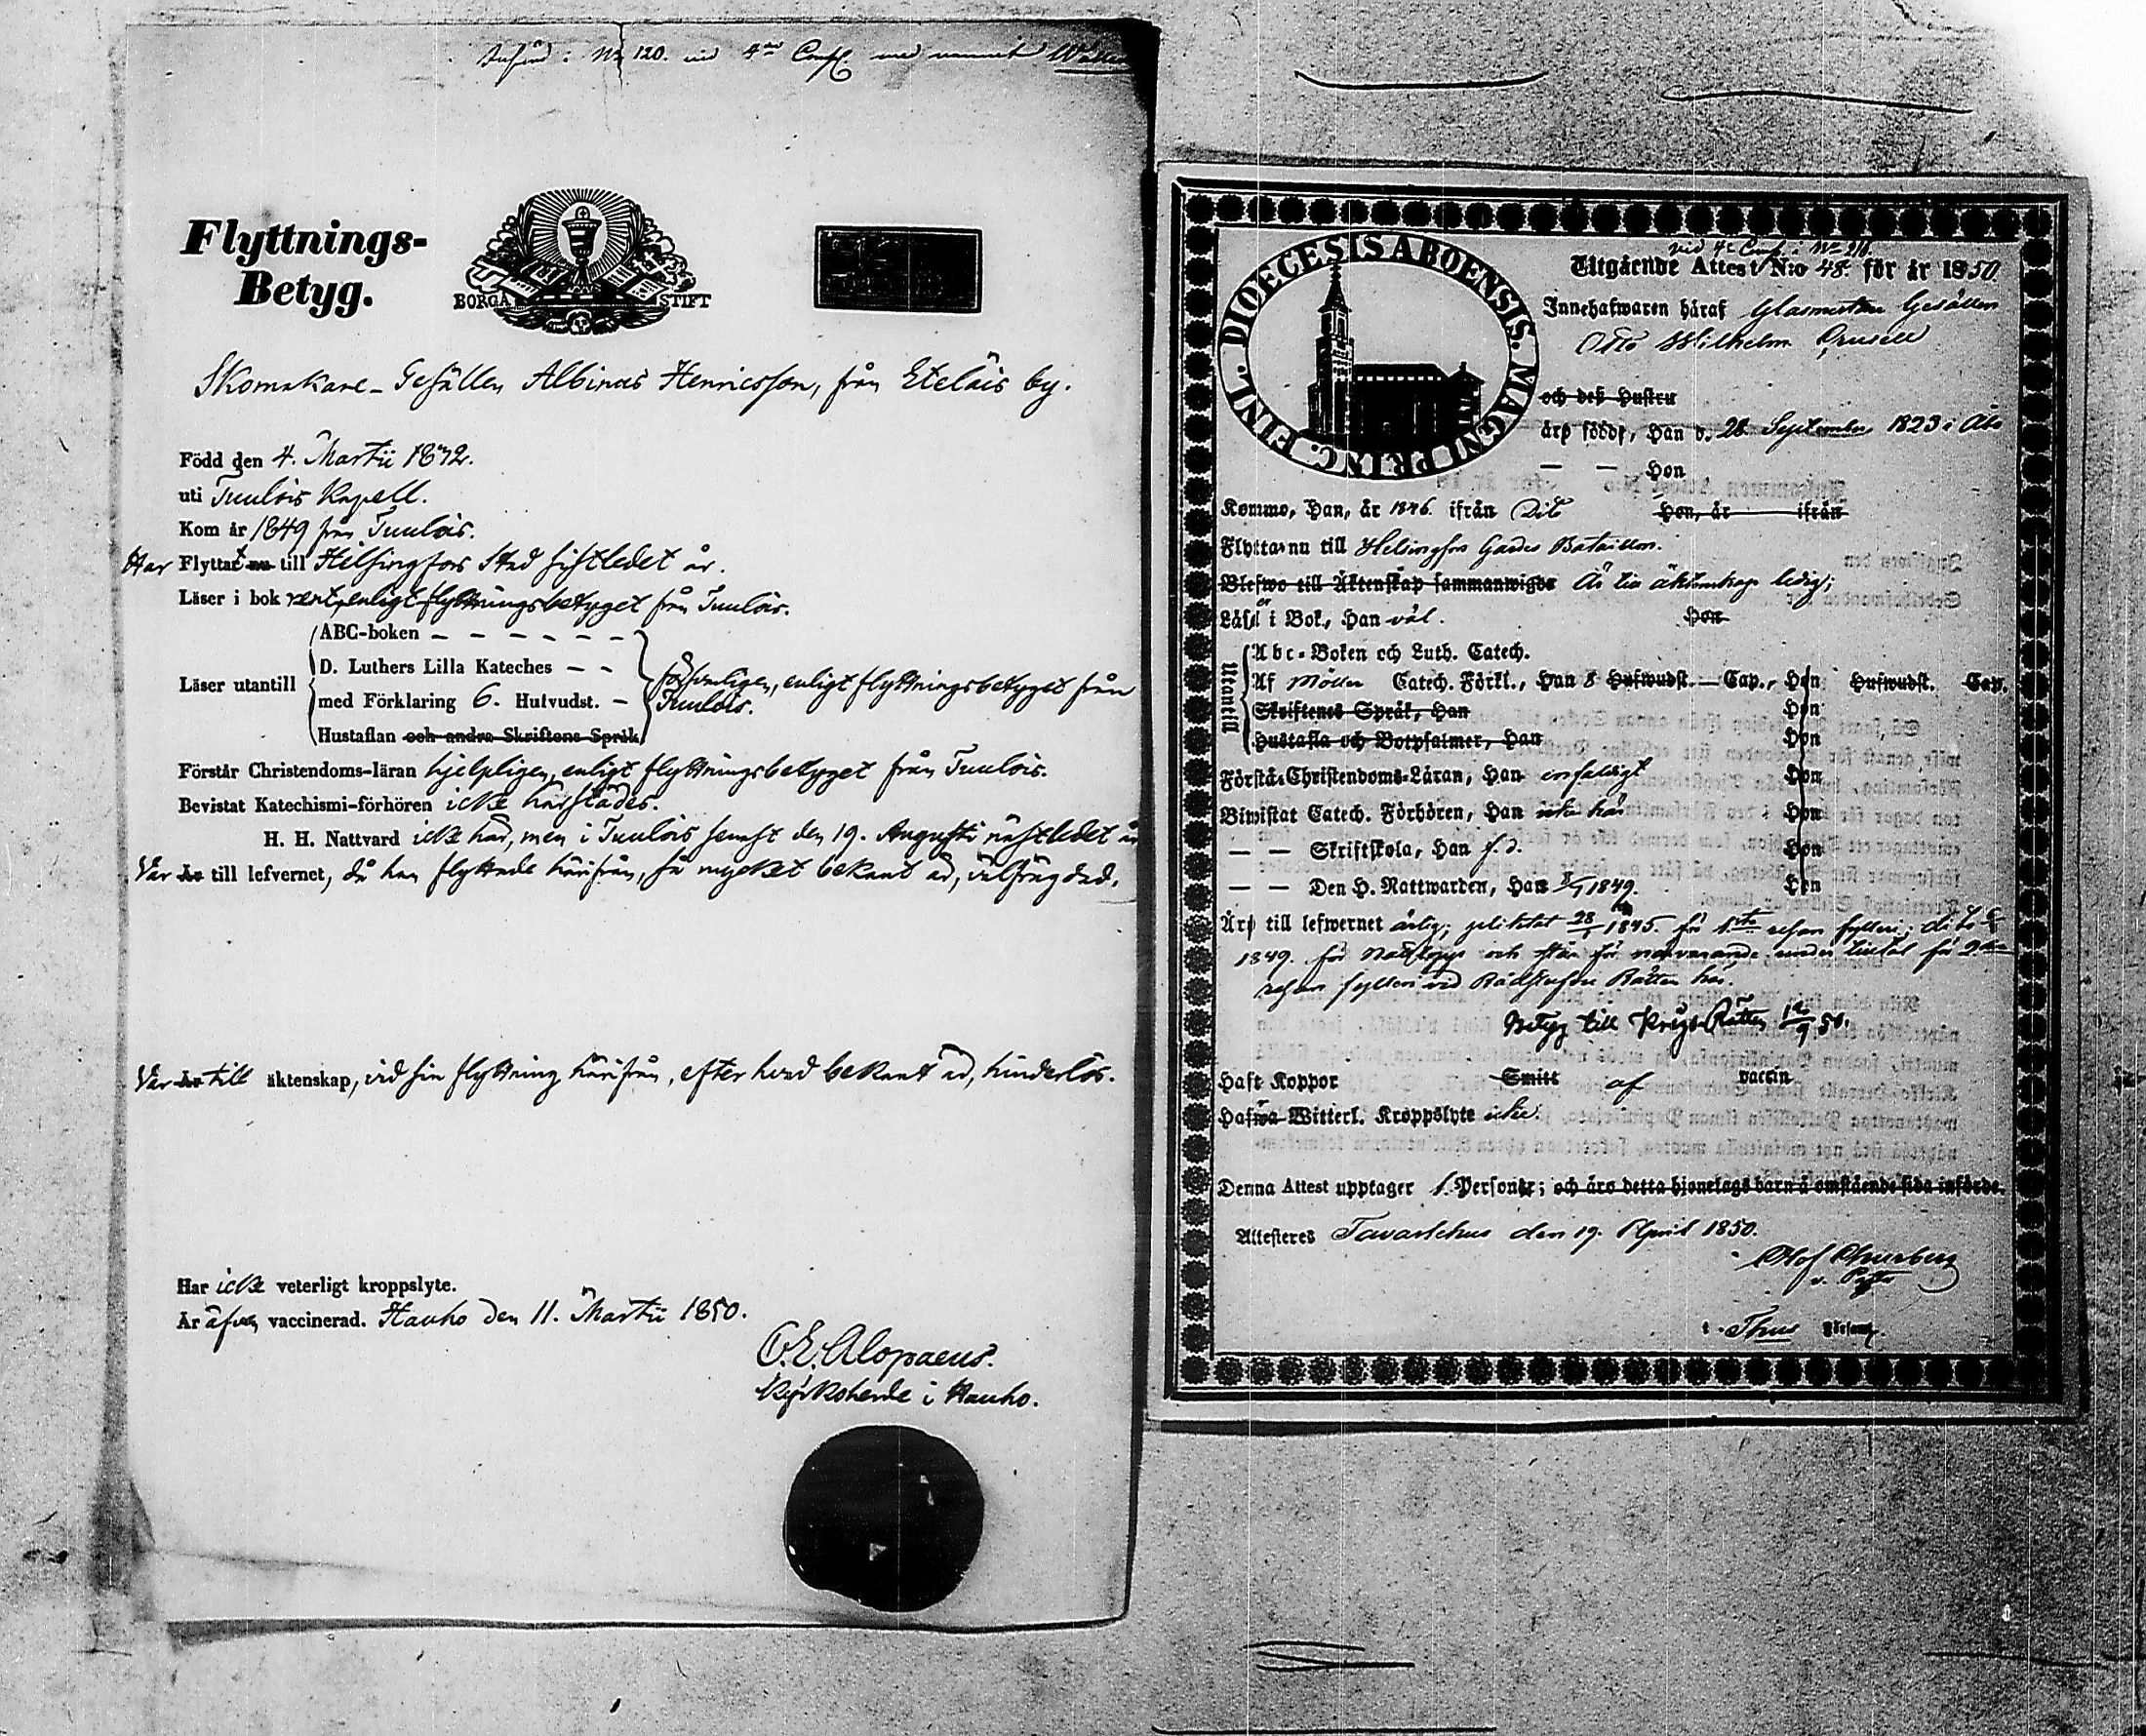 Införd i No 120. vid 4de Conf. med namnet
Flyttnings-
Betyg.
BORGÅ STIFT
Skomakare-Gesällen Albinus Henricsson, från Eteläis by.
Född den 4. Martii 1832.
uti Tuulois Kapell.
Kom år 1849 från Tuulois.
Har Flyttat nu till Helsingfors Stad sistledet år.
Läser i bok rent, enligt flyttningsbetyget från Tuulois.
ABC-boken — — — — — —
D. Luthers Lilla Kateches — —
Läser utantill
med Förklaring 6. Hufvudst. —
Hustaflan och andra Skriftens Språk
försvarligen, enligt flyttningsbetyget från
Tuulois.
Förstår Christendoms-läran hjelpligen, enligt flyttningsbetyget från Tuulois.
Bevistat Katechismi-förhören icke härstädes.
H. H. Nattvard icke här, men i Tuulois senast den 19. Augusti nästledet år
Var Är till lefvernet, då han flyttade härifrån, så mycket bekant är, välfrägdad.
Var Är till äktenskap, vid sin flyttning härifrån, efter hvad bekant är, hinderlös.
Har icke veterligt kroppslyte.
Är äfven vaccinerad. Hauho den 11. Martii 1850.
C.E. Alopaeus.
Kyrkoherde i Hauho.
DIOECESIS ABOENSIS. MAGNI PRINC. FINL.
vid 4e Conf. i No
Utgående Attest N:o 48. för år 1850.
Innehafwaren häraf Gesällen
Otto Wilhelm
och deß Hustru
äro födde, Han d. 28 September 1823 i Åbo
— — Hon
Komme, Han, år 1846. ifrån Dito Hon, år ifrån
Flytta nu till Helsingfors Gardes Bataillon.
Blefwo till Äktenskap sammanwigde Är till äktenskap ledig;
Läsa i Bok, Han väl. Hon
Utantill
Abc-Boken och Luth. Catech.
Af Möller Catech. Förkl., Han 8 Hufwudst. — Cap., Hon Hufwudst. Cap.
Skriftenes Språk, Han Hon
Hustafla och Botpsalmer, Han Hon
Förstå Christendoms-Läran, Han enfaldigt Hon
Biwistat Catech. Förhören, Han icke här Hon
— — Skriftskola, Han f. d. Hon
— — Den H. Nattwarden, Han 1849. Hon
Äro till lefwernet ärlig; pliktat 28 1845. för 1sta resan fylleri; dito
1849. för och står för närvarande under tilltal för 2dra
resan fylleri vid Rådstufvu Rätten här.
Betyg till Rätten 50.
Haft Koppor Smitt af vaccin
Hafwa Witterl. Kroppslyte icke.
Denna Attest upptager 1. Personer; och äro detta hjonelags barn å omstående sida införde.
Attesteres Tavastehus den 19. April 1850.
Olof
v. Pastor
i Thus Församl.